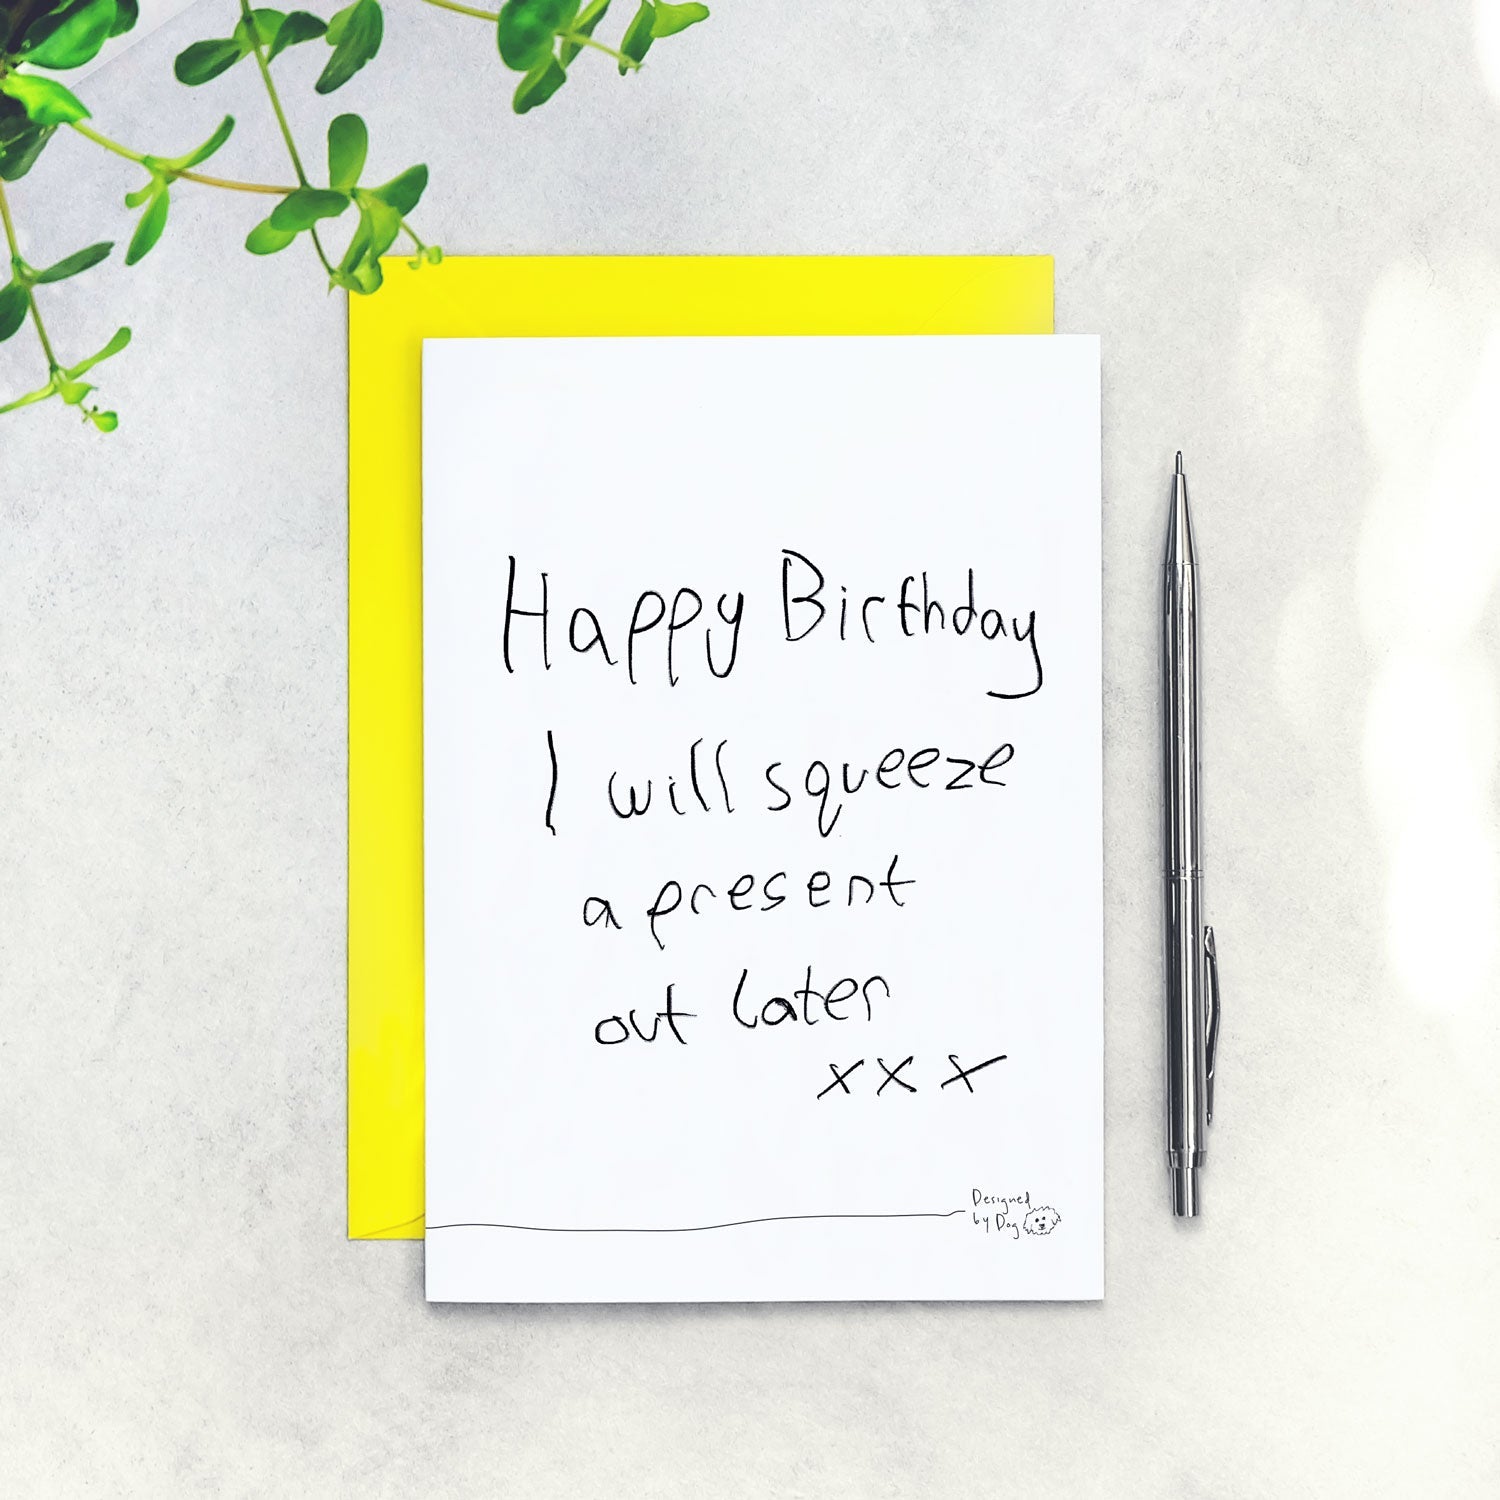 Happy Birthday
I will squeeze
a present
out later
xxx
Designed
by Dog